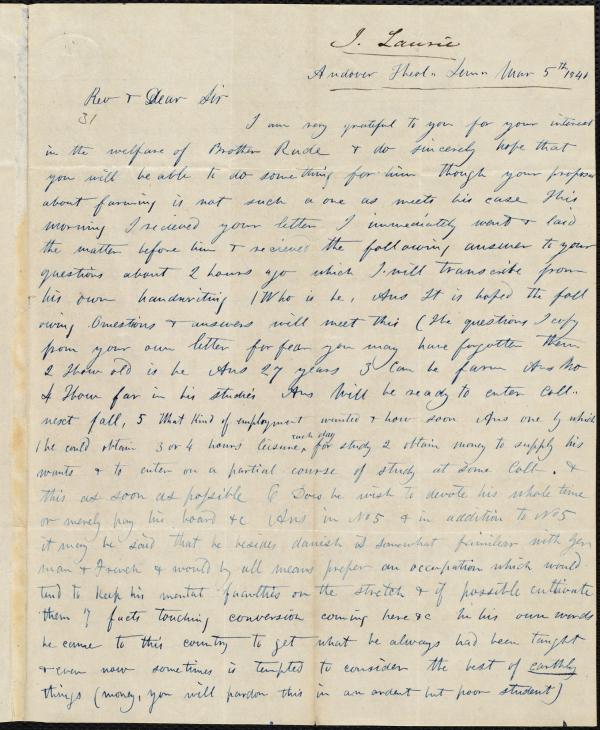 J. Laurie
Andover Theol. Sem. Mar 5th 1841
Rev & Dear Sir
31
I am very grateful to you for your interest
in the welfare of Brother Rude & do sincerely hope that
you will be able to do something for him though your proposal
about farming is not such a one as meets his case This
morning I recieved your letter I immediately went & laid
the matter before him & recieved the following answer to your
questions about 2 hours ago which I will transcribe from
his own handwriting 1 Who is he, Ans It is hoped the foll
owing Questions & answers will meet this (The questions I copy
from your own letter for fear you may have forgotten them
2 How old is he Ans 27 years 3 Can he farm Ans No
4 How far in his studies Ans Will be ready to enter Coll..
next fall, 5 What kind of employment wanted & how soon Ans one by which
1 he could obtain 3 or 4 hours leisure each day for study 2 obtain money to supply his
wants & to enter on a partial course of study at some Coll. &
this as soon as possible 6 Does he wish to devote his whole time
or merely pay his board &c Ans in No 5 & in addition to No 5
it may be said that he besides danish is somewhat familiar with Ger
man & French & would by all means prefer an occupation which would
tend to keep his mental faculties on the stretch & if possible cultivate
them 7 facts touching conversion coming here &c In his own words
he came to this country to get what he always had been taught
& even now sometimes is tempted to consider the best of earthly
things (money, you will pardon this in an ardent but poor student)